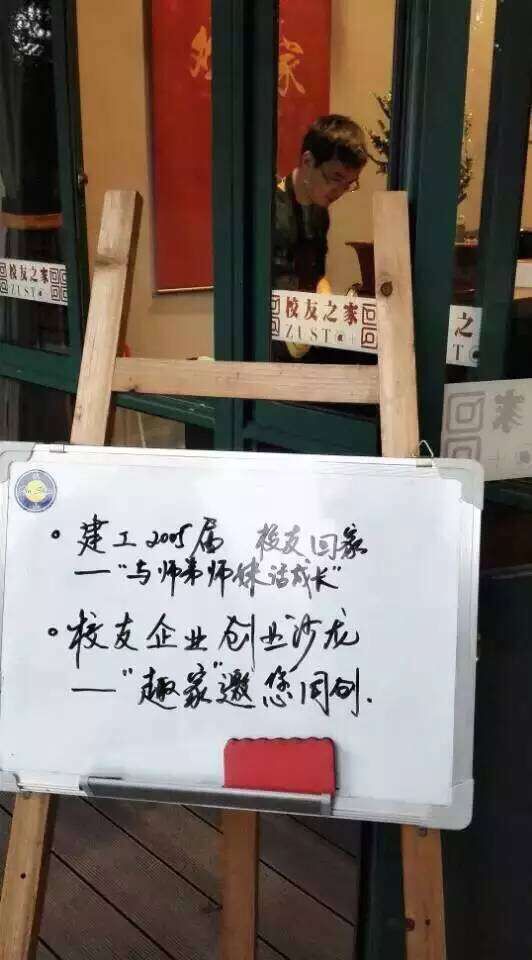 家
校友之家
ZUST@+
校友之家
ZUST@+
之
T@
家
• 建工2005届 校友回家
——“与师弟师妹话成长”
• 校友企业创业沙龙
——“趣家”邀您同创.